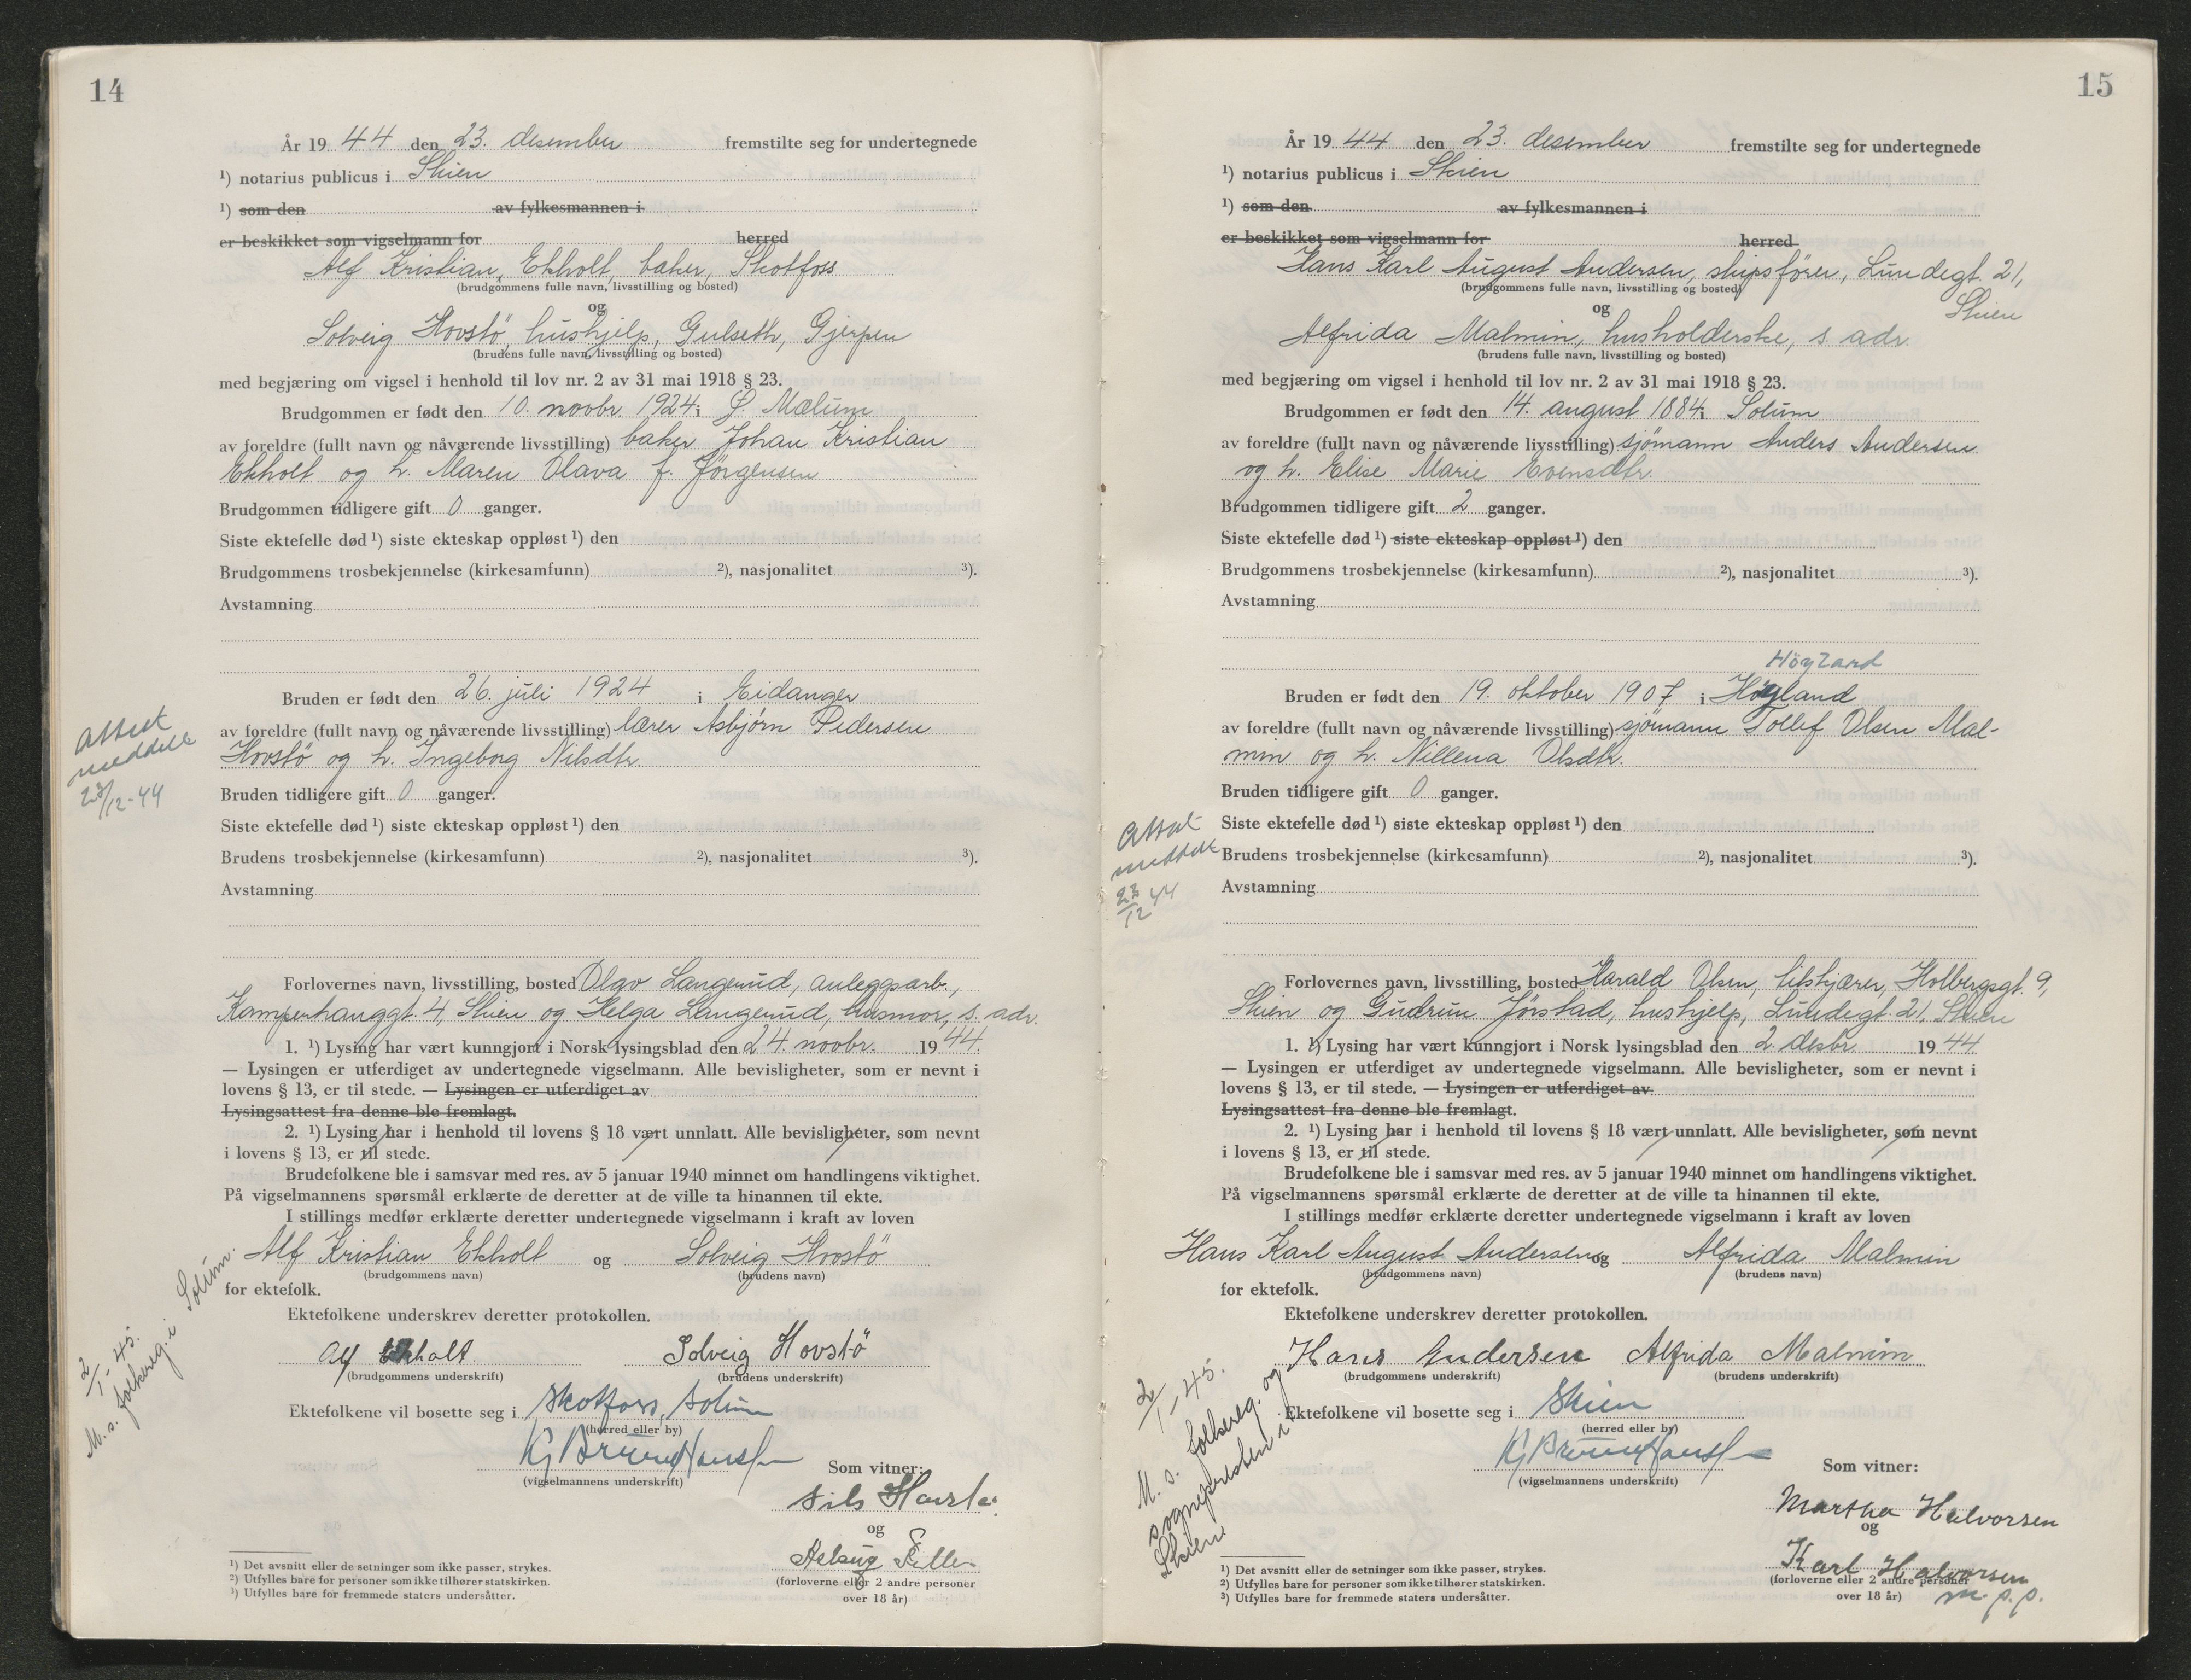 14
År 19 44 den 23. desember fremstilte seg for undertegnede
¹) notarius publicus i Skien
¹) som den av fylkesmannen i
er beskikket som vigselmann for herred
Alf Kristian Ekholt, baker, Skotfoss
(brudgommens fulle navn, livsstilling og bosted)
og
Solveig Hovstö, hushjelp, Gulseth, Gjerpen
(brudens fulle navn, livsstilling og bosted)
med begjæring om vigsel i henhold til lov nr. 2 av 31 mai 1918 § 23.
Brudgommen er født den 10. novbr. 1924 i S. Mælum
av foreldre (fullt navn og nåværende livsstilling) baker Johan Kristian
Ekholt og h. Maren Olava f. Jörgensen
Brudgommen tidligere gift 0 ganger.
Siste ektefelle død ¹) siste ekteskap oppløst ¹) den
Brudgommens trosbekjennelse (kirkesamfunn) ²), nasjonalitet ³).
Avstamning
Bruden er født den 26. juli 1924 i Eidanger
av foreldre (fullt navn og nåværende livsstilling) lærer Asbjörn Pedersen
Hovstö og h. Ingeborg Nilsdtr.
Attest
meddelt
23/12-44
Bruden tidligere gift 0 ganger.
Siste ektefelle død ¹) siste ekteskap oppløst ¹) den
Brudens trosbekjennelse (kirkesamfunn) ²), nasjonalitet ³).
Avstamning
Forlovernes navn, livsstilling, bosted Olav Langerud, anleggsarb.,
Kamperhauggt. 4, Skien og Helga Langerud, husmor, s. adr.
1. ¹) Lysing har vært kunngjort i Norsk lysingsblad den 24. novbr. 19 44.
— Lysingen er utferdiget av undertegnede vigselmann. Alle bevisligheter, som er nevnt i
lovens § 13, er til stede. — Lysingen er utferdiget av
Lysingsattest fra denne ble fremlagt.
2. ¹) Lysing har i henhold til lovens § 18 vært unnlatt. Alle bevisligheter, som nevnt
i lovens § 13, er til stede.
Brudefolkene ble i samsvar med res. av 5 januar 1940 minnet om handlingens viktighet.
På vigselmannens spørsmål erklærte de deretter at de ville ta hinannen til ekte.
I stillings medfør erklærte deretter undertegnede vigselmann i kraft av loven
Alf Kristian Ekholt og Solveig Hovstö
(brudgommens navn) (brudens navn)
for ektefolk.
Ektefolkene underskrev deretter protokollen.
Alf Ekholt. Solveig Hovstö
(brudgommens underskrift) (brudens underskrift)
2/1-45.
M. s. folkereg. i Solum.
Ektefolkene vil bosette seg i Skotfoss, Solum
(herred eller by)
(vigselmannens underskrift)
Som vitner:
Nils
og
(forloverne eller 2 andre personer
over 18 år)
¹) Det avsnitt eller de setninger som ikke passer, strykes.
²) Utfylles bare for personer som ikke tilhører statskirken.
³) Utfylles bare for fremmede staters undersåtter.
15
År 19 44 den 23. desember fremstilte seg for undertegnede
¹) notarius publicus i Skien
¹) som den av fylkesmannen i
er beskikket som vigselmann for herred
Hans Karl August Andersen, skipsförer, Lundegt. 21,
Skien
(brudgommens fulle navn, livsstilling og bosted)
og
Alfrida Malmin, husholderske, s. adr.
(brudens fulle navn, livsstilling og bosted)
med begjæring om vigsel i henhold til lov nr. 2 av 31 mai 1918 § 23.
Brudgommen er født den 14. august 1884 i Solum
av foreldre (fullt navn og nåværende livsstilling) sjömann Anders Andersen
og h. Elise Marie Evensdtr.
Brudgommen tidligere gift 2 ganger.
Siste ektefelle død ¹) siste ekteskap oppløst ¹) den
Brudgommens trosbekjennelse (kirkesamfunn) ²), nasjonalitet ³).
Avstamning
Höyland
Bruden er født den 19. oktober 1907 i Höyland
av foreldre (fullt navn og nåværende livsstilling) sjömann Tollef Olsen Mal-
min og h. Nillena Olsdtr.
Bruden tidligere gift 0 ganger.
Attest
meddelt
23/12 44
Siste ektefelle død ¹) siste ekteskap oppløst ¹) den
Brudens trosbekjennelse (kirkesamfunn) ²), nasjonalitet ³).
Avstamning
Forlovernes navn, livsstilling, bosted Harald Olsen, Holbergsgt. 9,
Skien og Gudrun Jörstad, hushjelp, Lundegt. 21, Skien
1. ¹) Lysing har vært kunngjort i Norsk lysingsblad den 2. desbr. 19 44
— Lysingen er utferdiget av undertegnede vigselmann. Alle bevisligheter, som er nevnt i
lovens § 13, er til stede. — Lysingen er utferdiget av
Lysingsattest fra denne ble fremlagt.
2. ¹) Lysing har i henhold til lovens § 18 vært unnlatt. Alle bevisligheter, som nevnt
i lovens § 13, er til stede.
Brudefolkene ble i samsvar med res. av 5 januar 1940 minnet om handlingens viktighet.
På vigselmannens spørsmål erklærte de deretter at de ville ta hinannen til ekte.
I stillings medfør erklærte deretter undertegnede vigselmann i kraft av loven
Hans Karl August Andersen og Alfrida Malmin
(brudgommens navn) (brudens navn)
for ektefolk.
Ektefolkene underskrev deretter protokollen.
Hans Andersen Alfrida Malmin
(brudgommens underskrift) (brudens underskrift)
2/1-45.
M. s. folkereg. og
sognepresten i
Skien
Ektefolkene vil bosette seg i Skien
(herred eller by)
(vigselmannens underskrift)
Som vitner:
Martha Halvorsen
og
Karl Halvorsen
m. p. p.
(forloverne eller 2 andre personer
over 18 år)
¹) Det avsnitt eller de setninger som ikke passer, strykes.
²) Utfylles bare for personer som ikke tilhører statskirken.
³) Utfylles bare for fremmede staters undersåtter.